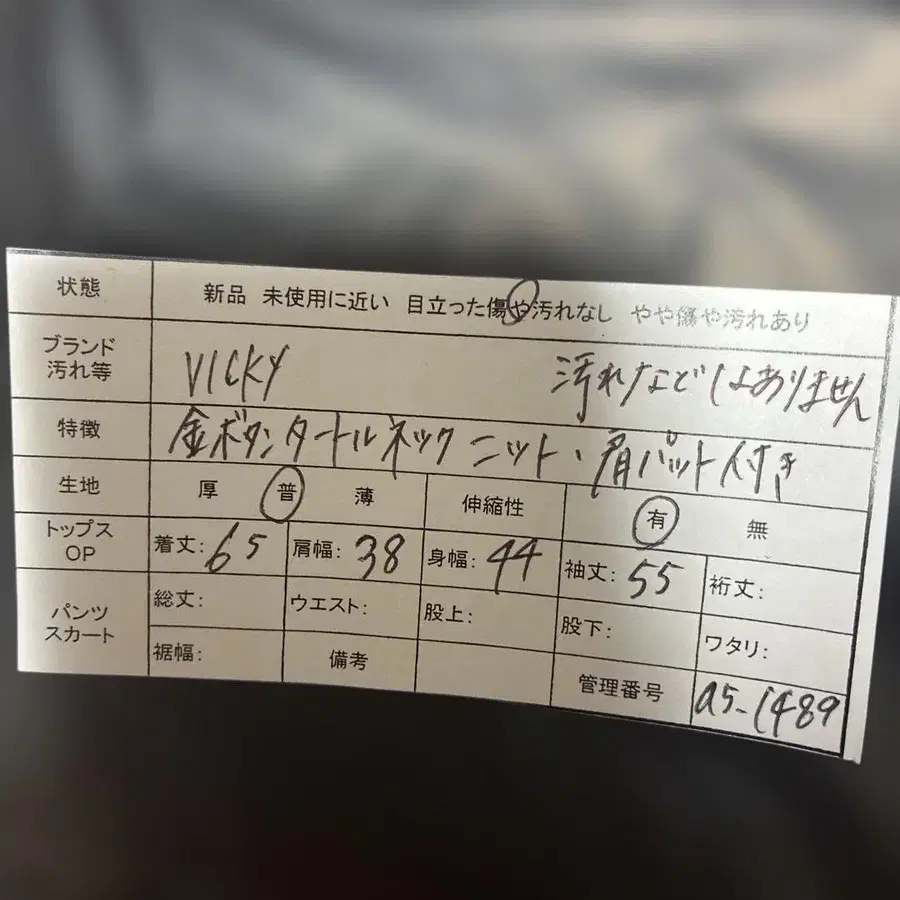 状態 新品 未使用に近い 目立った傷や汚れなし やや傷や汚れあり
ブランド
汚れ等 VICKY 汚れなどはありません
特徴 金ボタンタートルネックニット、肩パット付き
生地 厚 普 薄 伸縮性 有 無
トップス
OP 着丈: 65 肩幅: 38 身幅: 44 袖丈: 55 裄丈:
パンツ
スカート 総丈: ウエスト: 股上: 股下: ワタリ:
裾幅: 備考 管理番号 a5-1489